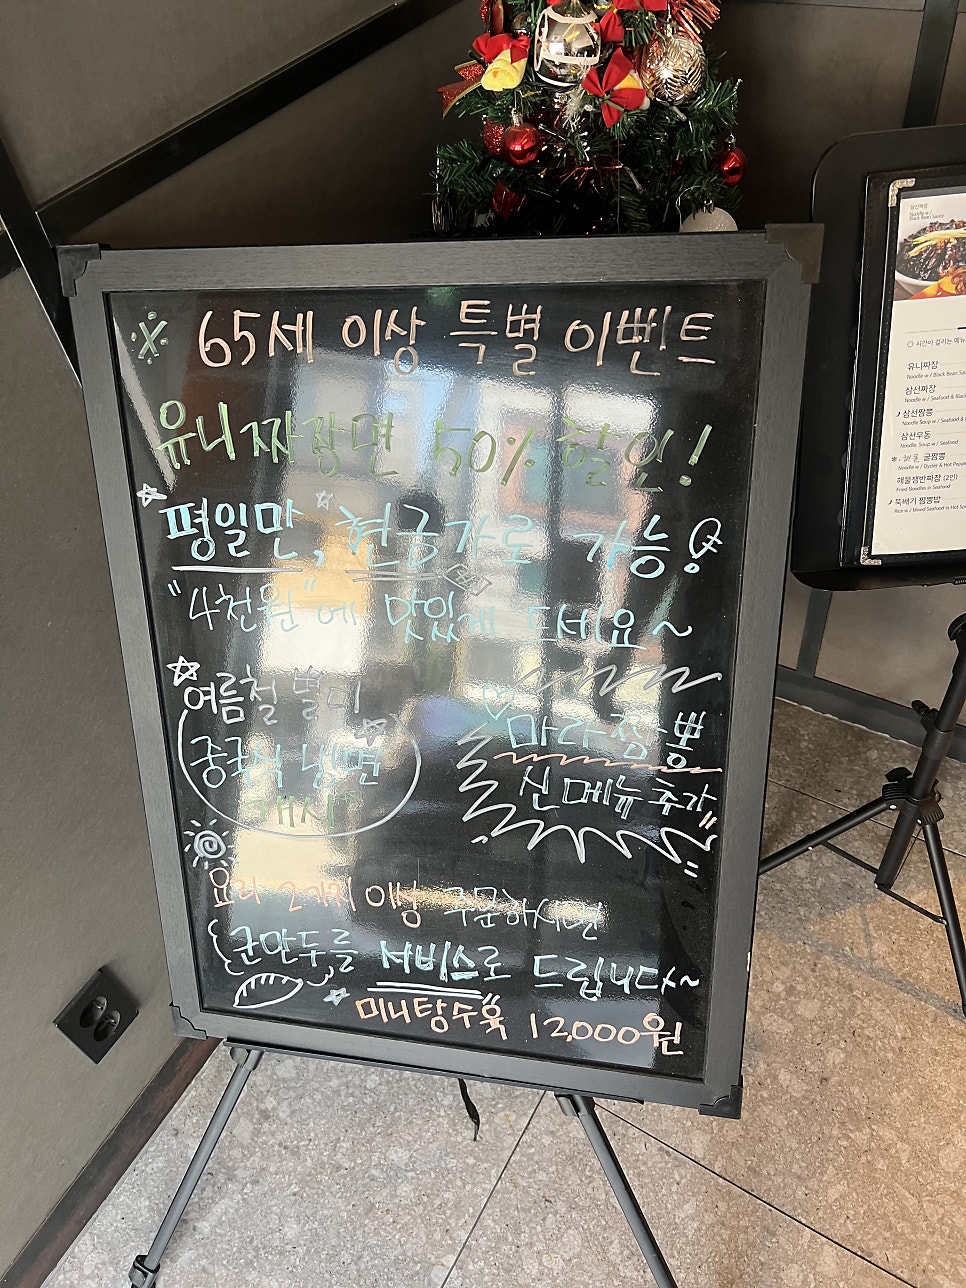 ※ 65세 이상 특별 이벤트
유니짜장면 50% 할인!
평일만, 현금가로 가능!
"4천원"에 맛있게 드세요~
여름철 별미
중국식 냉면
개시
마라짬뽕
신메뉴 추가
요리 2가지 이상 주문하시면
군만두를 서비스로 드립니다~
미니탕수육 12,000원
삼선짜장
Noodle w /
Black Bean Sauce
시간이 걸리는 메뉴
유니짜장
Noodle w / Black Bean Sau
삼선짜장
Noodle w / Seafood & Blac
삼선짬뽕
Noodle Soup w / Seafood &
삼선우동
Noodle Soup w / Seafood
굴짬뽕
Noodle w / Oyster & Hot Peppe
해물쟁반짜장 (2인)
Fried Noodles in Seafood
뚝배기 짬뽕밥
Rice w / Mixed Seafood in Hot Sp